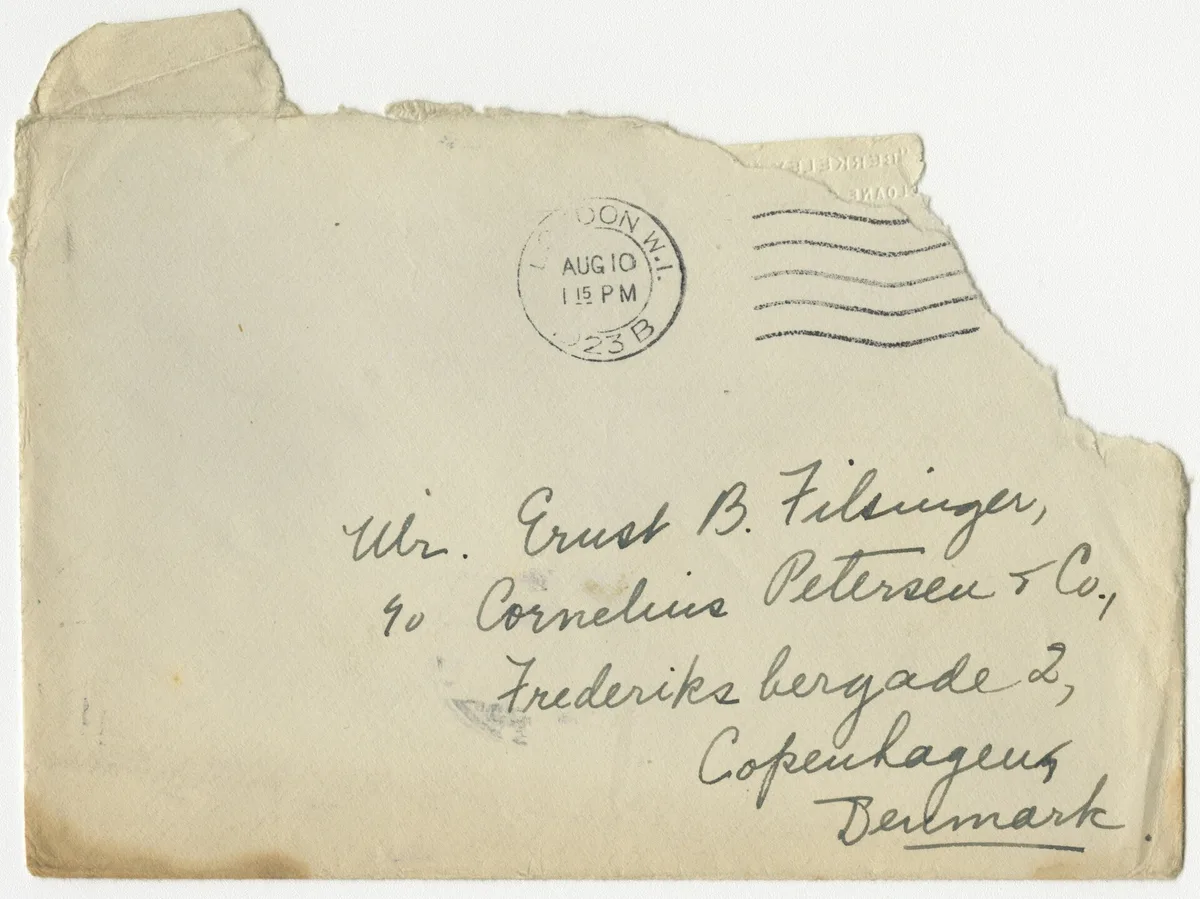 "BERKELEY
SLOANE
LONDON W.1.
AUG 10
1 15 PM
1923 B
Mr. Ernst B. Filsinger,
c/o Cornelius Petersen & Co.,
Frederiksbergade 2,
Copenhagen,
Denmark.